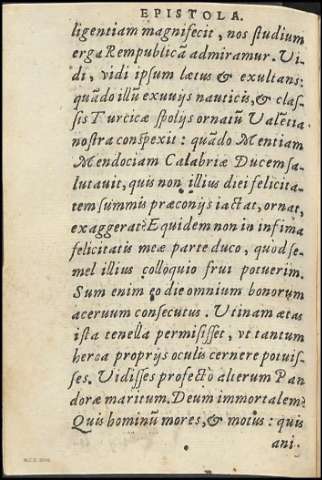 EPISTOLA.
ligentiam magnifecit, nos studium
erga Rempublicā admiramur. Ui-
di, vidi ipsum lætus & exultans:
quādo illū exuuijs nauticis, & clas-
sis Turcicæ spolijs ornatū Valētia
nostra conspexit: quādo Mentiam
Mendociam Calabriæ Ducem sa-
lutauit, quis non illius diei felicita-
tem summis præconijs iactat, ornat,
exaggerat? Equidem non in infima
felicitatis meæ parte duco, quod se-
mel illius colloquio frui potuerim.
Sum enim eo die omnium bonorum
aceruum consecutus. Utinam ætas
ista tenella permisisset, vt tantum
heroa proprijs oculis cernere potuis-
ses. Uidisses profecto alterum Pan
doræ maritum. Deum immortalem?
Quis hominū mores, & motus: quis
ani-